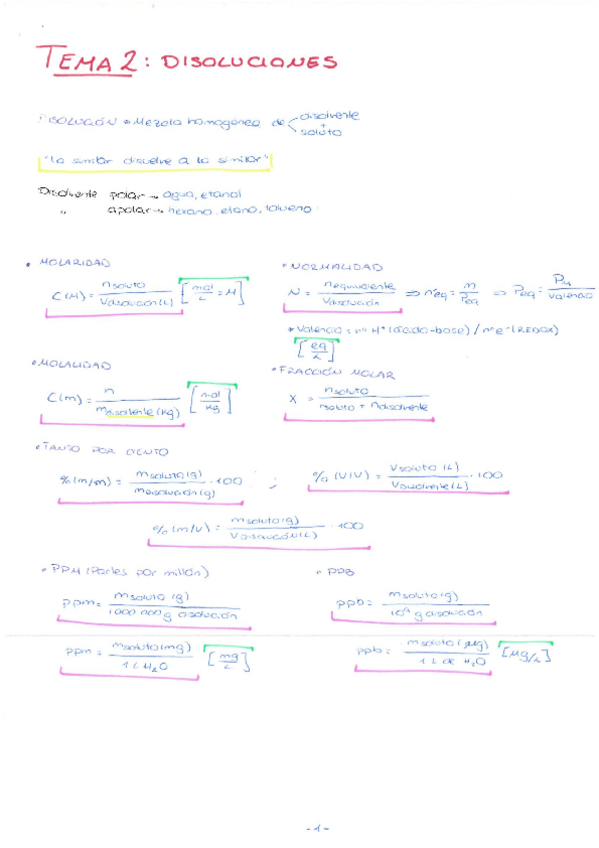 TEMA 2: DISOLUCIONES
DISOLUCIÓN → Mezcla homogénea de < disolvente + soluto
"Lo similar disuelve a lo similar"
Disolvente polar → agua, etanol
" apolar → hexano, etano, tolueno
• MOLARIDAD
C(M) = n soluto / V disolución (L) [mol/L = M]
• NORMALIDAD
N = n equivalente / V disolución ⇒ n° eq = m / Peq ⇒ Peq = PM / valencia
* Valencia = n° H⁺ (ácido-base) / n° e⁻ (REDOX)
[eq/L]
• MOLALIDAD
C(m) = n / m disolvente (kg) [mol/kg]
• FRACCIÓN MOLAR
X = n soluto / n soluto + n disolvente
• TANTO POR CIENTO
% (m/m) = m soluto (g) / m disolución (g) · 100 ; % (V/V) = V soluto (L) / V disolvente (L) · 100
% (m/V) = m soluto (g) / V disolución (L) · 100
• PPM (Partes por millón)
ppm = m soluto (g) / 1000 000 g disolución
ppm = m soluto (mg) / 1 L H₂O [mg/L]
• PPB
ppb = m soluto (g) / 10⁹ g disolución
ppb = m soluto (μg) / 1 L de H₂O [μg/L]
- 1 -